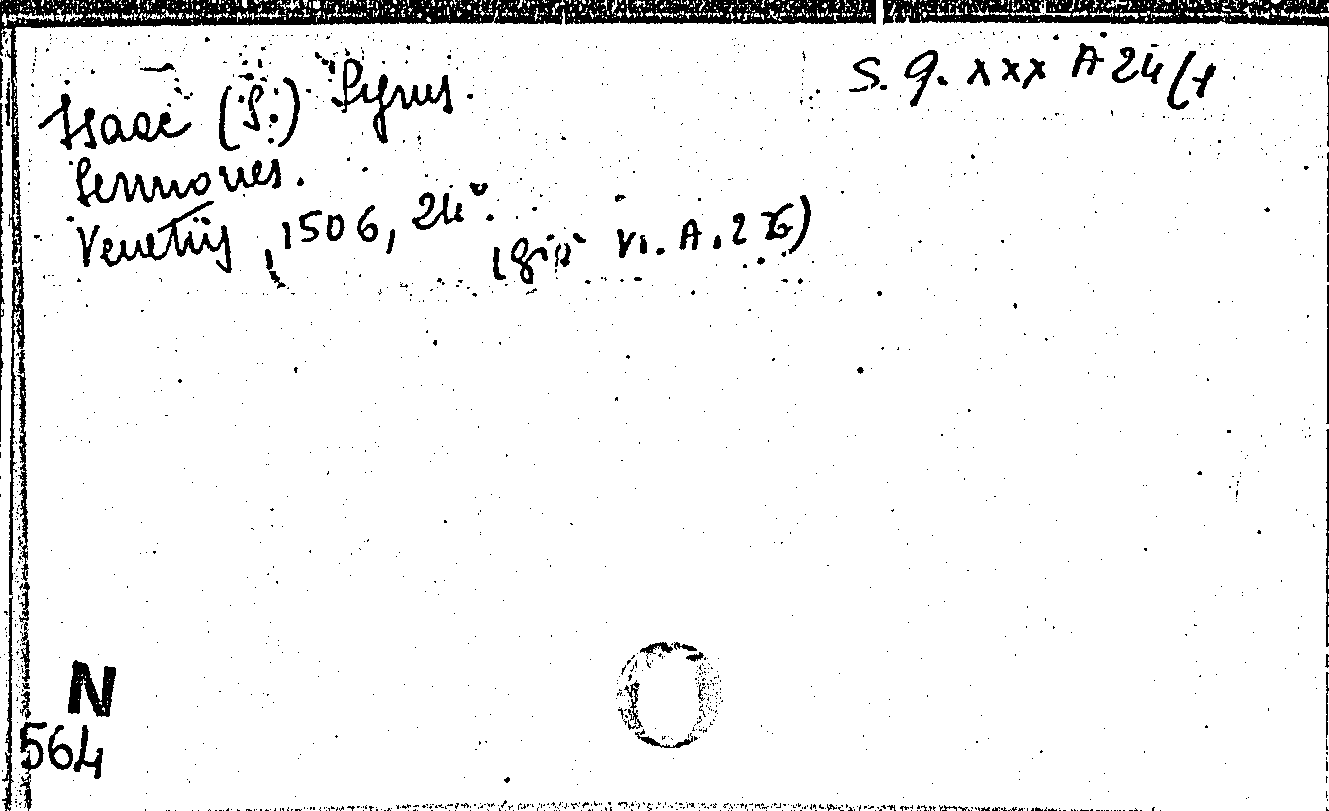 Isaac (S.) Syrus.
S. Q. XXX A 24 (1
Sermones.
Venetiis, 1506, 24°.
(già VI. A. 26)
N
564